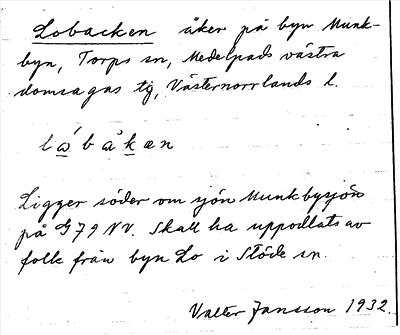 Lobacken åker på byn Munk-
byn, Torps sn, Medelpads västra
domsagas tg, Västernorrlands l.
Ligger söder om sjön Munkbysjön
på G79 NV. Skall ha uppodlats av
folk från byn Lo i Stöde sn.
Valter Jansson 1932.